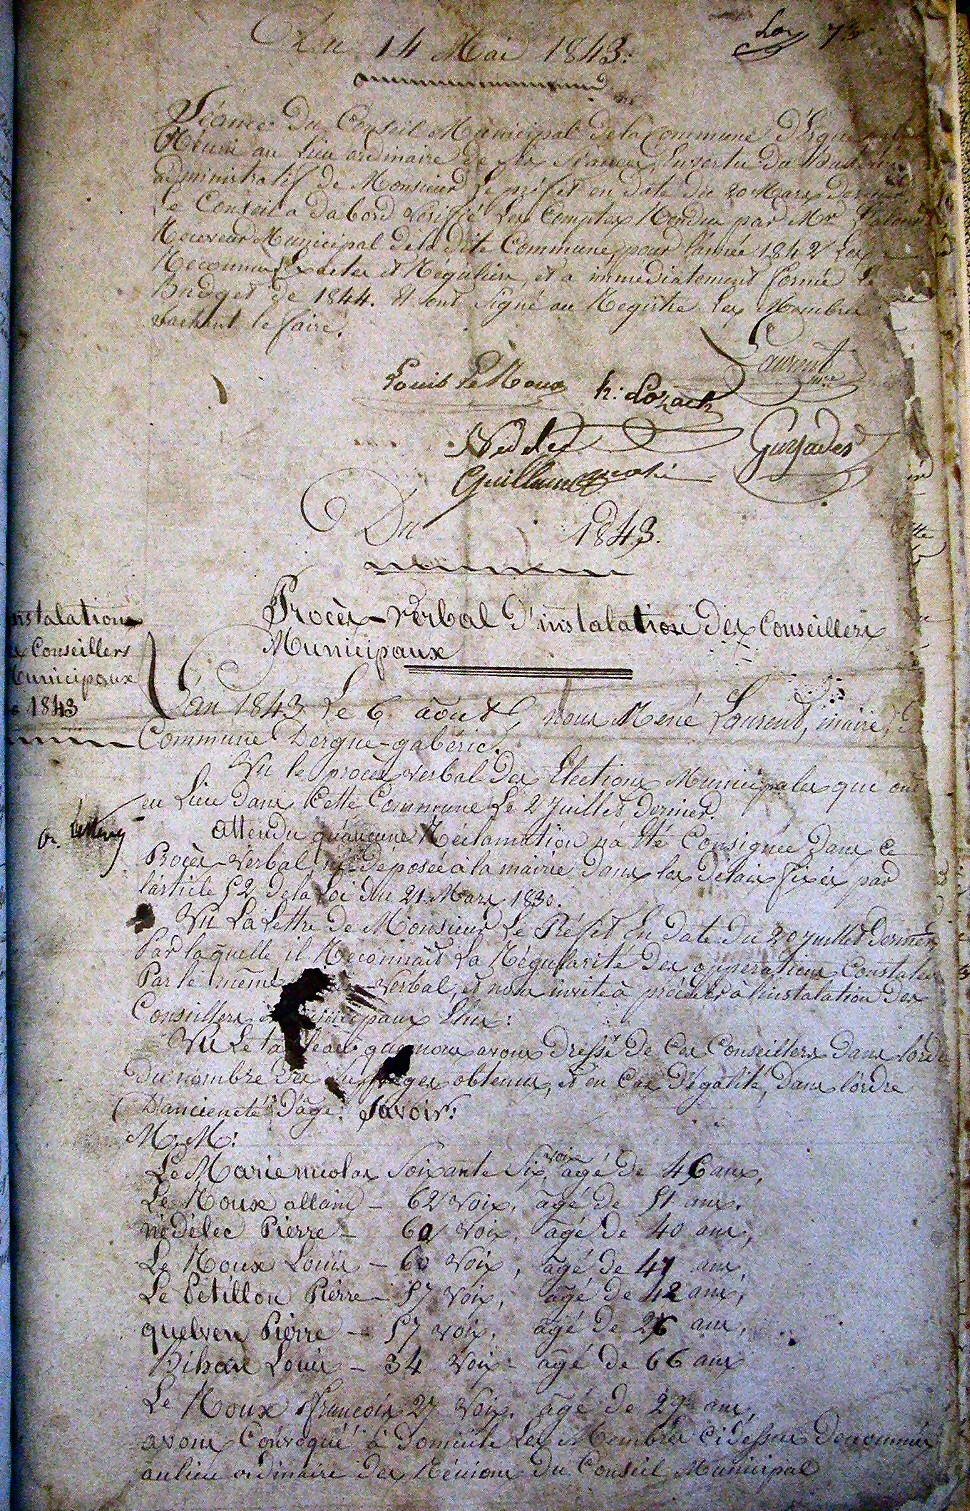 Du 14 Mai 1843.
Séance du Conseil Municipal de la Commune
Réuni au lieu ordinaire de Ses Séances, En vertu du
administratif de Monsieur Le préfet en date du 20 Mars dernier
Le Conseil a dabord vérifié Les Comptes Rendus par Mr
Receveur Municipal de la dite Commune, pour l'année 1842 Les
Reconnus Exactes et Réguliers, et a immédiatement formé Le
Budget de 1844. et ont signé au Registre Les Membres
Sachant le faire.
Laurent
Louis Le Roux h: Lozach
Nédélec Guyader
Guillaume
Du 1843.
Procès-verbal d'instalation des Conseillers
Municipaux
nstalation
Conseillers
unicipaux
1843
L'an 1843 Le 6 août, nous René Laurent, maire, d
Commune Dergué-gabéric.
Vu le procès verbal des Elections Municipales qui ont
eu Lieu dans Cette Commune Le 2 juillet dernier.
attendu qu'aucune Réclamation na été Consignée dans ce
Procès-Verbal ni déposée à la mairie dans les délais fixés par
l'article 52 de la Loi du 21 Mars 1830.
Vu La Lettre de Monsieur Le Préfet En date du 20 juillet dernier
Par laquelle il Reconnait La Régularité des opperations Constatées
Par le même verbal, et nous invite à procéder à l'instalation des
Conseillers municipaux Elus:
Vu Le tableau que nous avons dressé de Ces Conseillers dans l'ordre
du nombre des suffrages obtenus, et en Cas d'égalité, dans l'ordre
D'ancieneté d'âge: Savoir:
M.M:
Le Marie nicolas Soixante Six voix, âgé de 46 ans,
Le Roux allain – 62 voix, âgé de 51 ans,
nédélec Pierre – 60 voix, âgé de 40 ans,
Le Roux Louis – 60 voix, âgé de 47 ans,
Le Pétillon Pierre – 57 voix, âgé de 42 ans,
quelven Pierre – 57 voix, âgé de 26 ans,
Bihan Louis – 34 voix – âgé de 66 ans
Le Roux François 27 voix, âgé de 29 ans,
avons Convoqué à domicile Les Membres ci dessus dénommés
au lieu ordinaire des Réunions du Conseil Municipal